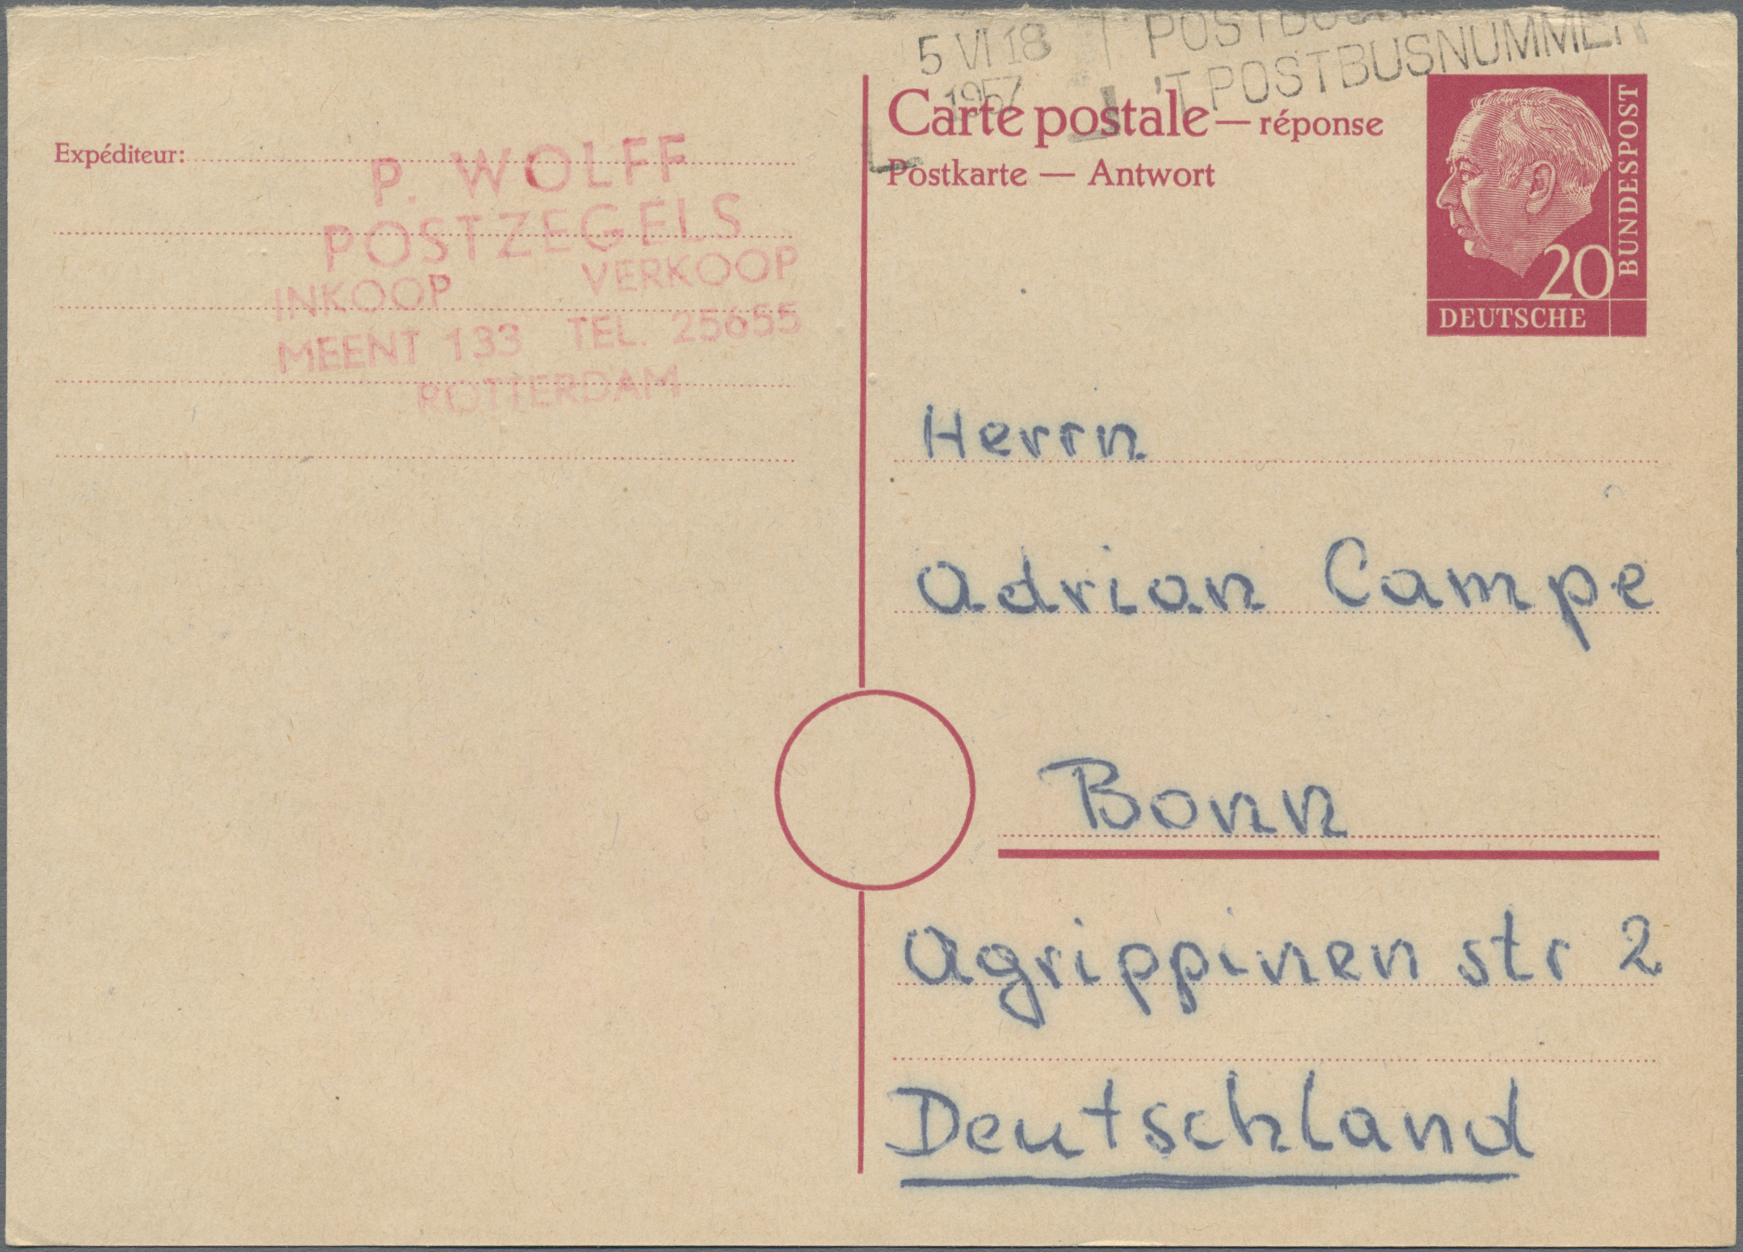 5 VI 18
1957
'T POSTBUSNUMMER
Carte postale — réponse
Postkarte — Antwort
BUNDESPOST
20
DEUTSCHE
Expéditeur:
P. WOLFF
POSTZEGELS
INKOOP VERKOOP
MEENT 133 TEL. 25655
ROTTERDAM
Herrn
Adrian Campe
Bonn
Agrippinenstr 2
Deutschland